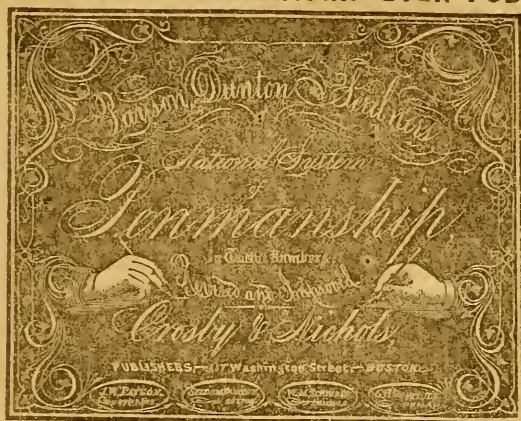 Payson, Dunton & Scribner's
National System
of
Penmanship
In Twelve Numbers
Revised and Improved
Crosby & Nichols,
PUBLISHERS,— 117 Washington Street,— BOSTON.
J.W. PAYSON.